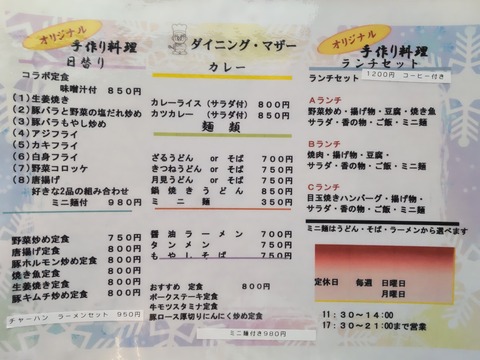 オリジナル
手作り料理
日替り
コラボ定食
味噌汁付 850円
(1)生姜焼き
(2)豚バラと野菜の塩だれ炒め
(3)豚バラもやし炒め
(4)アジフライ
(5)カキフライ
(6)白身フライ
(7)野菜コロッケ
(8)唐揚げ
好きな2品の組み合わせ
ミニ麺付 980円
野菜炒め定食 750円
唐揚げ定食 800円
豚ホルモン炒め定食 800円
焼き魚定食 800円
生姜焼き定食 800円
豚キムチ炒め定食 800円
チャーハン ラーメンセット 950円
ダイニング・マザー
カレー
カレーライス(サラダ付) 800円
カツカレー(サラダ付) 850円
麺類
ざるうどん or そば 700円
きつねうどん or そば 700円
月見うどん or そば 750円
鍋焼きうどん 850円
ミニ麺 350円
醤油ラーメン 700円
タンメン 750円
もやしそば 750円
おすすめ 定食 800円
ポークステーキ定食
牛モツスタミナ定食
豚ロース厚切りにんにく炒め定食
ミニ麺付き980円
オリジナル
手作り料理
ランチセット
ランチセット 1200円 コーヒー付き
Aランチ
野菜炒め・揚げ物・豆腐・焼き魚
サラダ・香の物・ご飯・ミニ麺
Bランチ
焼肉・揚げ物・豆腐・
サラダ・香の物・ご飯・ミニ麺
Cランチ
目玉焼きハンバーグ・揚げ物・
サラダ・香の物・ご飯・ミニ麺
ミニ麺はうどん・そば・ラーメンから選べます
定休日 毎週 日曜日
月曜日
11:30~14:00
17:30~21:00まで営業